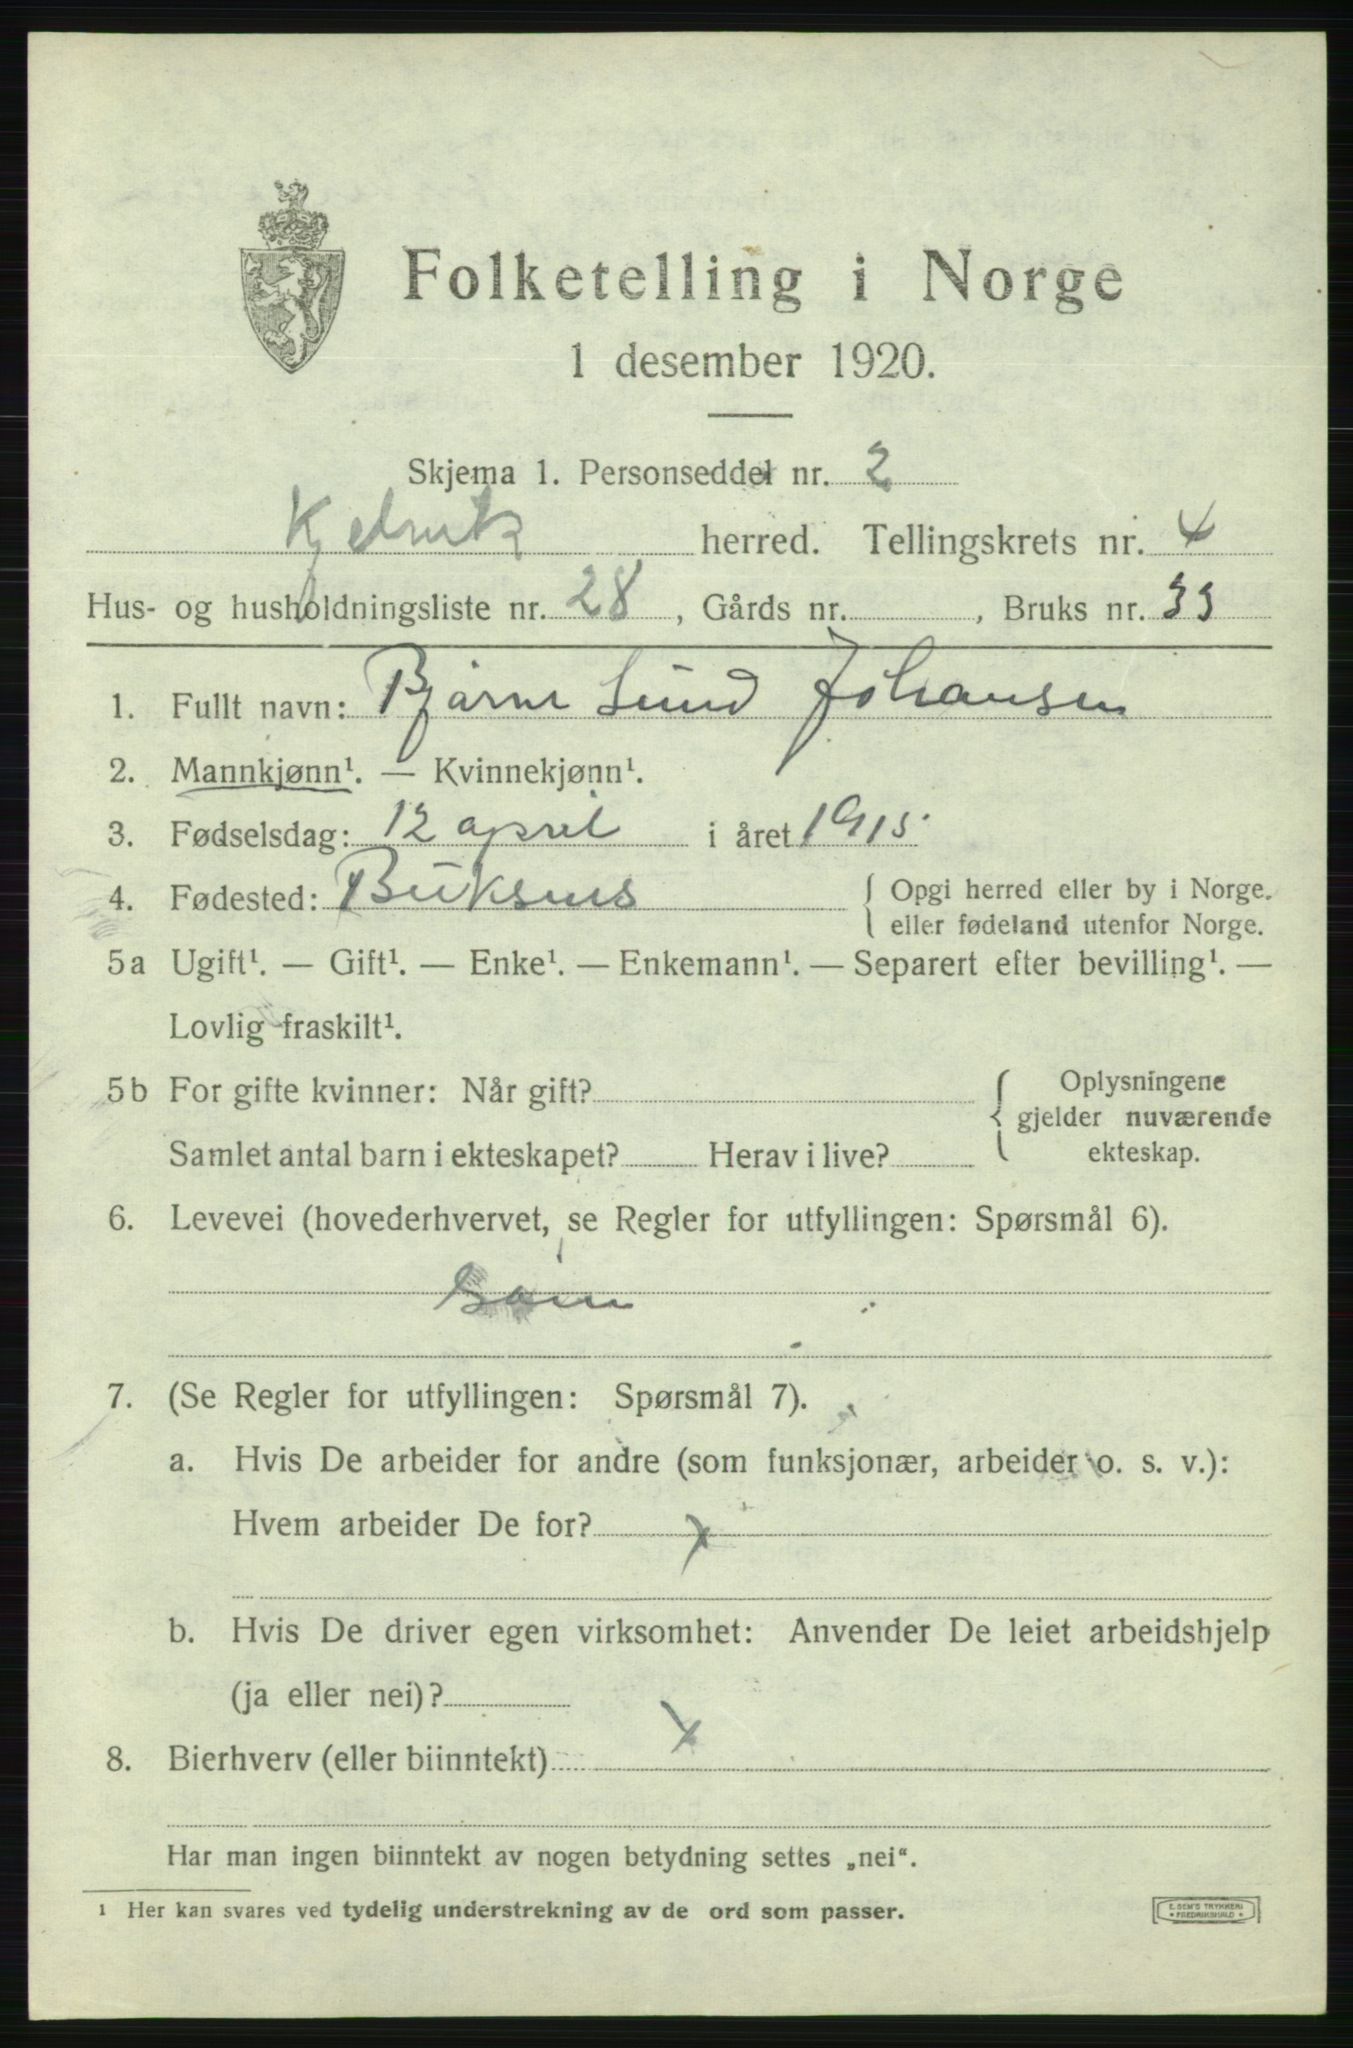 Folketelling i Norge
1 desember 1920.
Skjema 1. Personseddel nr. 2
Kjelvik herred. Tellingskrets nr. 4
Hus- og husholdningsliste nr. 28, Gårds nr. , Bruks nr. 33
1. Fullt navn: Bjarne Lund Johansen
2. Mannkjønn¹. — Kvinnekjønn¹.
3. Fødselsdag: 12 april i året 1915.
4. Fødested: Buksnes { Opgi herred eller by i Norge.
eller fødeland utenfor Norge.
5a Ugift¹. — Gift¹. — Enke¹. — Enkemann¹. — Separert efter bevilling¹. —
Lovlig fraskilt¹.
5b For gifte kvinner: Når gift? { Oplysningene
gjelder nuværende
Samlet antal barn i ekteskapet? Herav i live? ekteskap.
6. Levevei (hovederhvervet, se Regler for utfyllingen: Spørsmål 6).
Søn
7. (Se Regler for utfyllingen: Spørsmål 7).
a. Hvis De arbeider for andre (som funksjonær, arbeider o. s. v.):
Hvem arbeider De for? x
b. Hvis De driver egen virksomhet: Anvender De leiet arbeidshjelp
(ja eller nei)?
8. Bierhverv (eller biinntekt) x
Har man ingen biinntekt av nogen betydning settes „nei“.
¹ Her kan svares ved tydelig understrekning av de ord som passer.
E. SEM'S TRYKKERI
* FREDRIKSHALD *